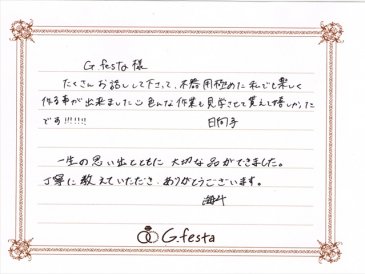 G.festa 様
たくさんお話しして下さって、不器用極めた私でも楽しく
作る事が出来ました☺色んな作業も見学させて貰えて嬉しかった
です!!!!!!
日向子
一生の思い出とともに大切な品ができました。
丁寧に教えていただき、ありがとうございます。
G.festa